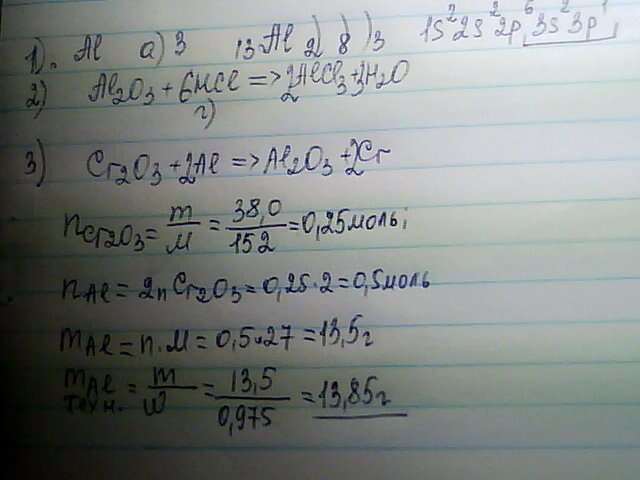 1). Al а) 3 ₁₃Al 2) 8) )3 1s²2s²2p⁶3s²3p¹
2) Al₂O₃ + 6HCl => 2AlCl₃ + 3H₂O
г)
3) Cr₂O₃ + 2Al => Al₂O₃ + 2Cr
nCr₂O₃ = m/M = 38,0/152 = 0,25моль;
nAl = 2nCr₂O₃ = 0,25·2 = 0,5моль
mAl = n·M = 0,5·27 = 13,5г
mAl техн. = m/w = 13,5/0,975 = 13,85г